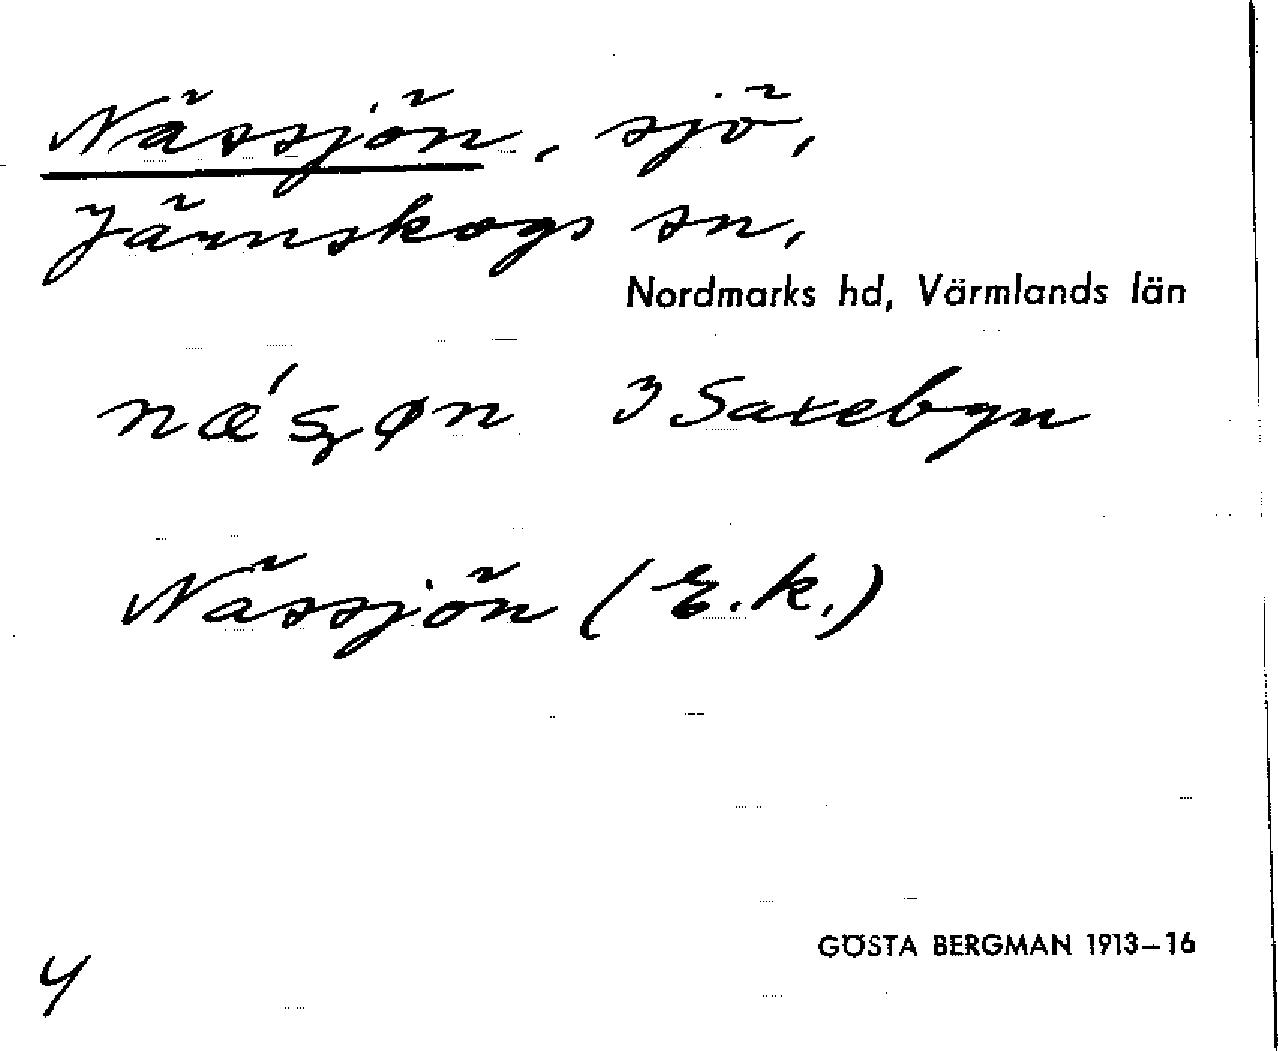 Nässjön, sjö,
Järnskogs sn,
Nordmarks hd, Värmlands län
næ´şøn 3 Saxebyn
Nässjön (E.k.)
GÖSTA BERGMAN 1913–16
4